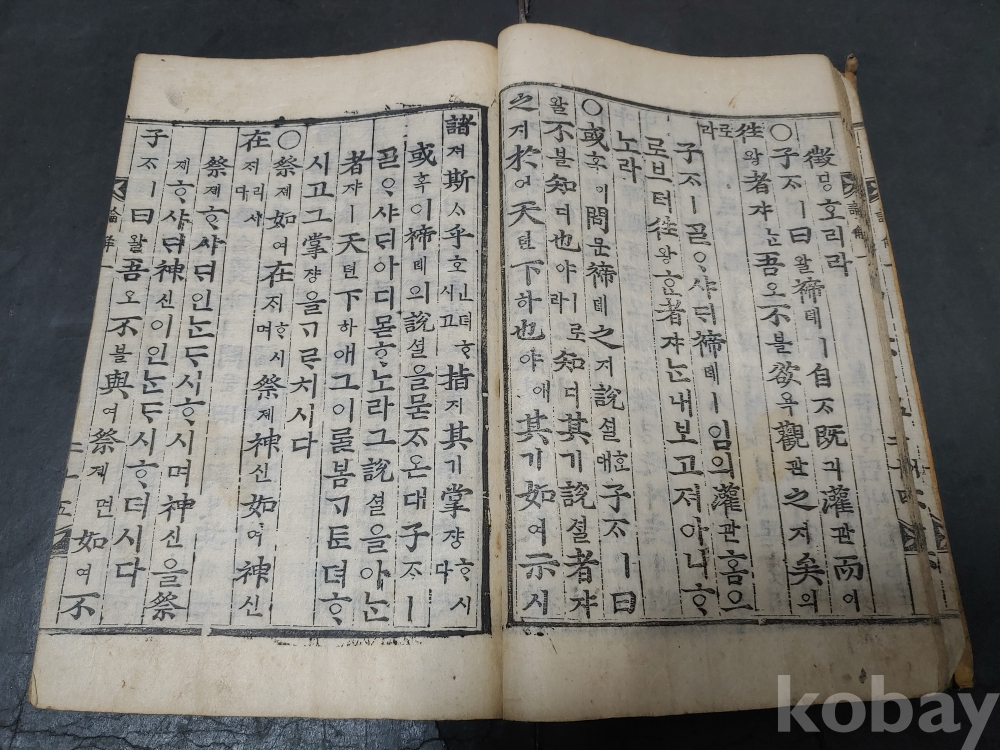 徵딩호리라
○子ᄌᆞㅣ曰왈禘톄ㅣ自ᄌᆞ旣긔灌관而이
往왕者쟈ᄂᆞᆫ吾오不블欲욕觀관之지矣의
로라
子ᄌᆞㅣᄀᆞᆯᄋᆞ샤ᄃᆡ禘톄ㅣ임의灌관홈으
로브터往왕ᄒᆞᆫ者쟈ᄂᆞᆫ내보고져아니ᄒᆞ
노라
○或혹이問문禘톄之지說셜ᄒᆞᆫ대子ᄌᆞㅣ曰
왈不블知디也야ㅣ로라知디其기說셜者쟈
之지於어天텬下하也야애其기如여示시
諸져斯ᄉᆞ乎호ㅣㄴ뎌ᄒᆞ시고指지其기掌쟝ᄒᆞ시다
或혹이禘톄의說셜을묻ᄌᆞ온대子ᄌᆞㅣ
ᄀᆞᆯᄋᆞ샤ᄃᆡ아디몯ᄒᆞ노라그說셜을아ᄂᆞᆫ
者쟈ㅣ天텬下하애그이ᄅᆞᆯ봄ᄀᆞᄐᆞᆫ뎌ᄒᆞ
시고그掌쟝을ᄀᆞᄅᆞ치시다
○祭졔如여在ᄌᆡᄒᆞ시며祭졔神신如여神신
在ᄌᆡ러시다
祭졔ᄒᆞ샤ᄃᆡ인ᄂᆞᆫᄃᆞ시ᄒᆞ시며神신을祭
졔ᄒᆞ샤ᄃᆡ神신이인ᄂᆞᆫᄃᆞ시ᄒᆞ더시다
子ᄌᆞㅣ曰왈吾오不블與여祭졔면如여不
論解一
二十五
kobay